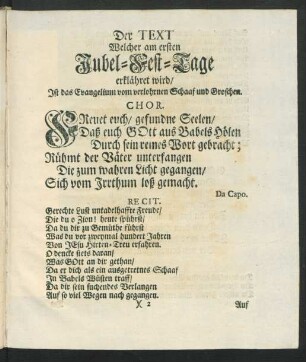 Der TEXT
Welcher am ersten
Jubel-Fest-Tage
erklähret wird/
Ist das Evangelium vom verlohrnen Schaaf und Groschen.
CHOR.
FReuet euch/ gefundne Seelen/
Daß euch GOtt aus Babels Hölen
Durch sein reines Wort gebracht;
Rühmt der Väter unterfangen
Die zum wahren Licht gegangen/
Sich vom Irrthum loß gemacht.
Da Capo.
RECIT.
Gerechte Lust untadelhaffte Freude/
Die du o Zion! heute spührst/
Da du dir zu Gemüthe führst
Was du vor zweymal hundert Jahren
Von JEsu Hirten-Treu erfahren.
O dencke stets daran/
Was GOtt an dir gethan/
Da er dich als ein ausgetretnes Schaaf
In Babels Wüsten traff/
Da dir sein suchendes Verlangen
Auf so viel Wegen nach gegangen.
X 2
Auf